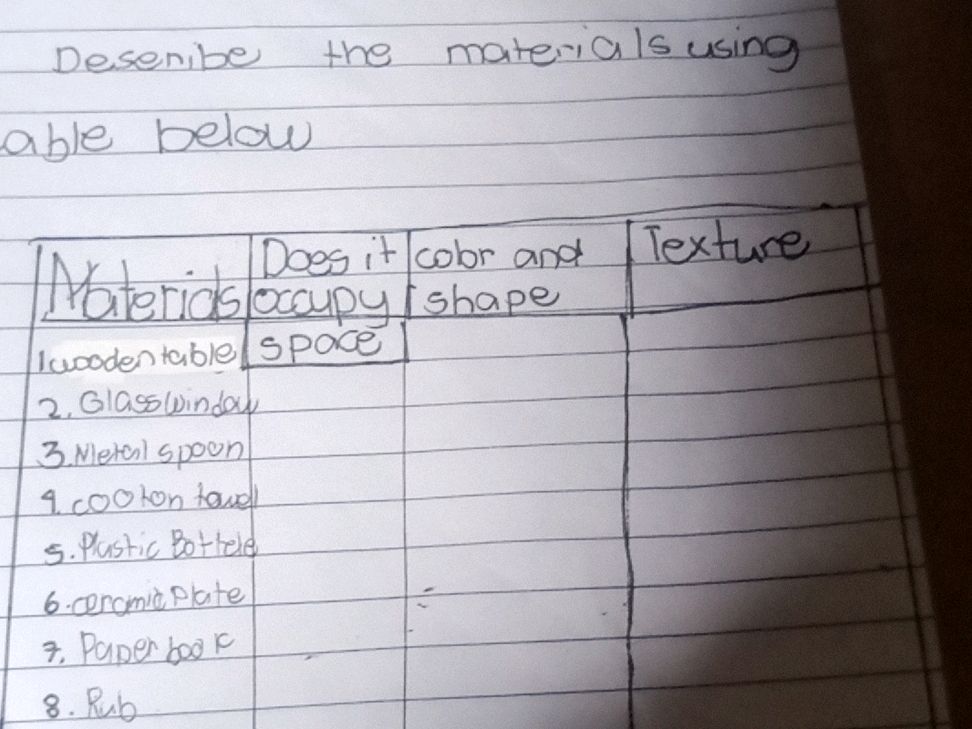 Describe the materials using
able below
Materials Does it occupy space color and shape Texture
1 wooden table
2. Glass window
3. Metal spoon
4. cooton towel
5. Plastic Bottele
6. ceramic Plate
7. Paper book
8. Rub